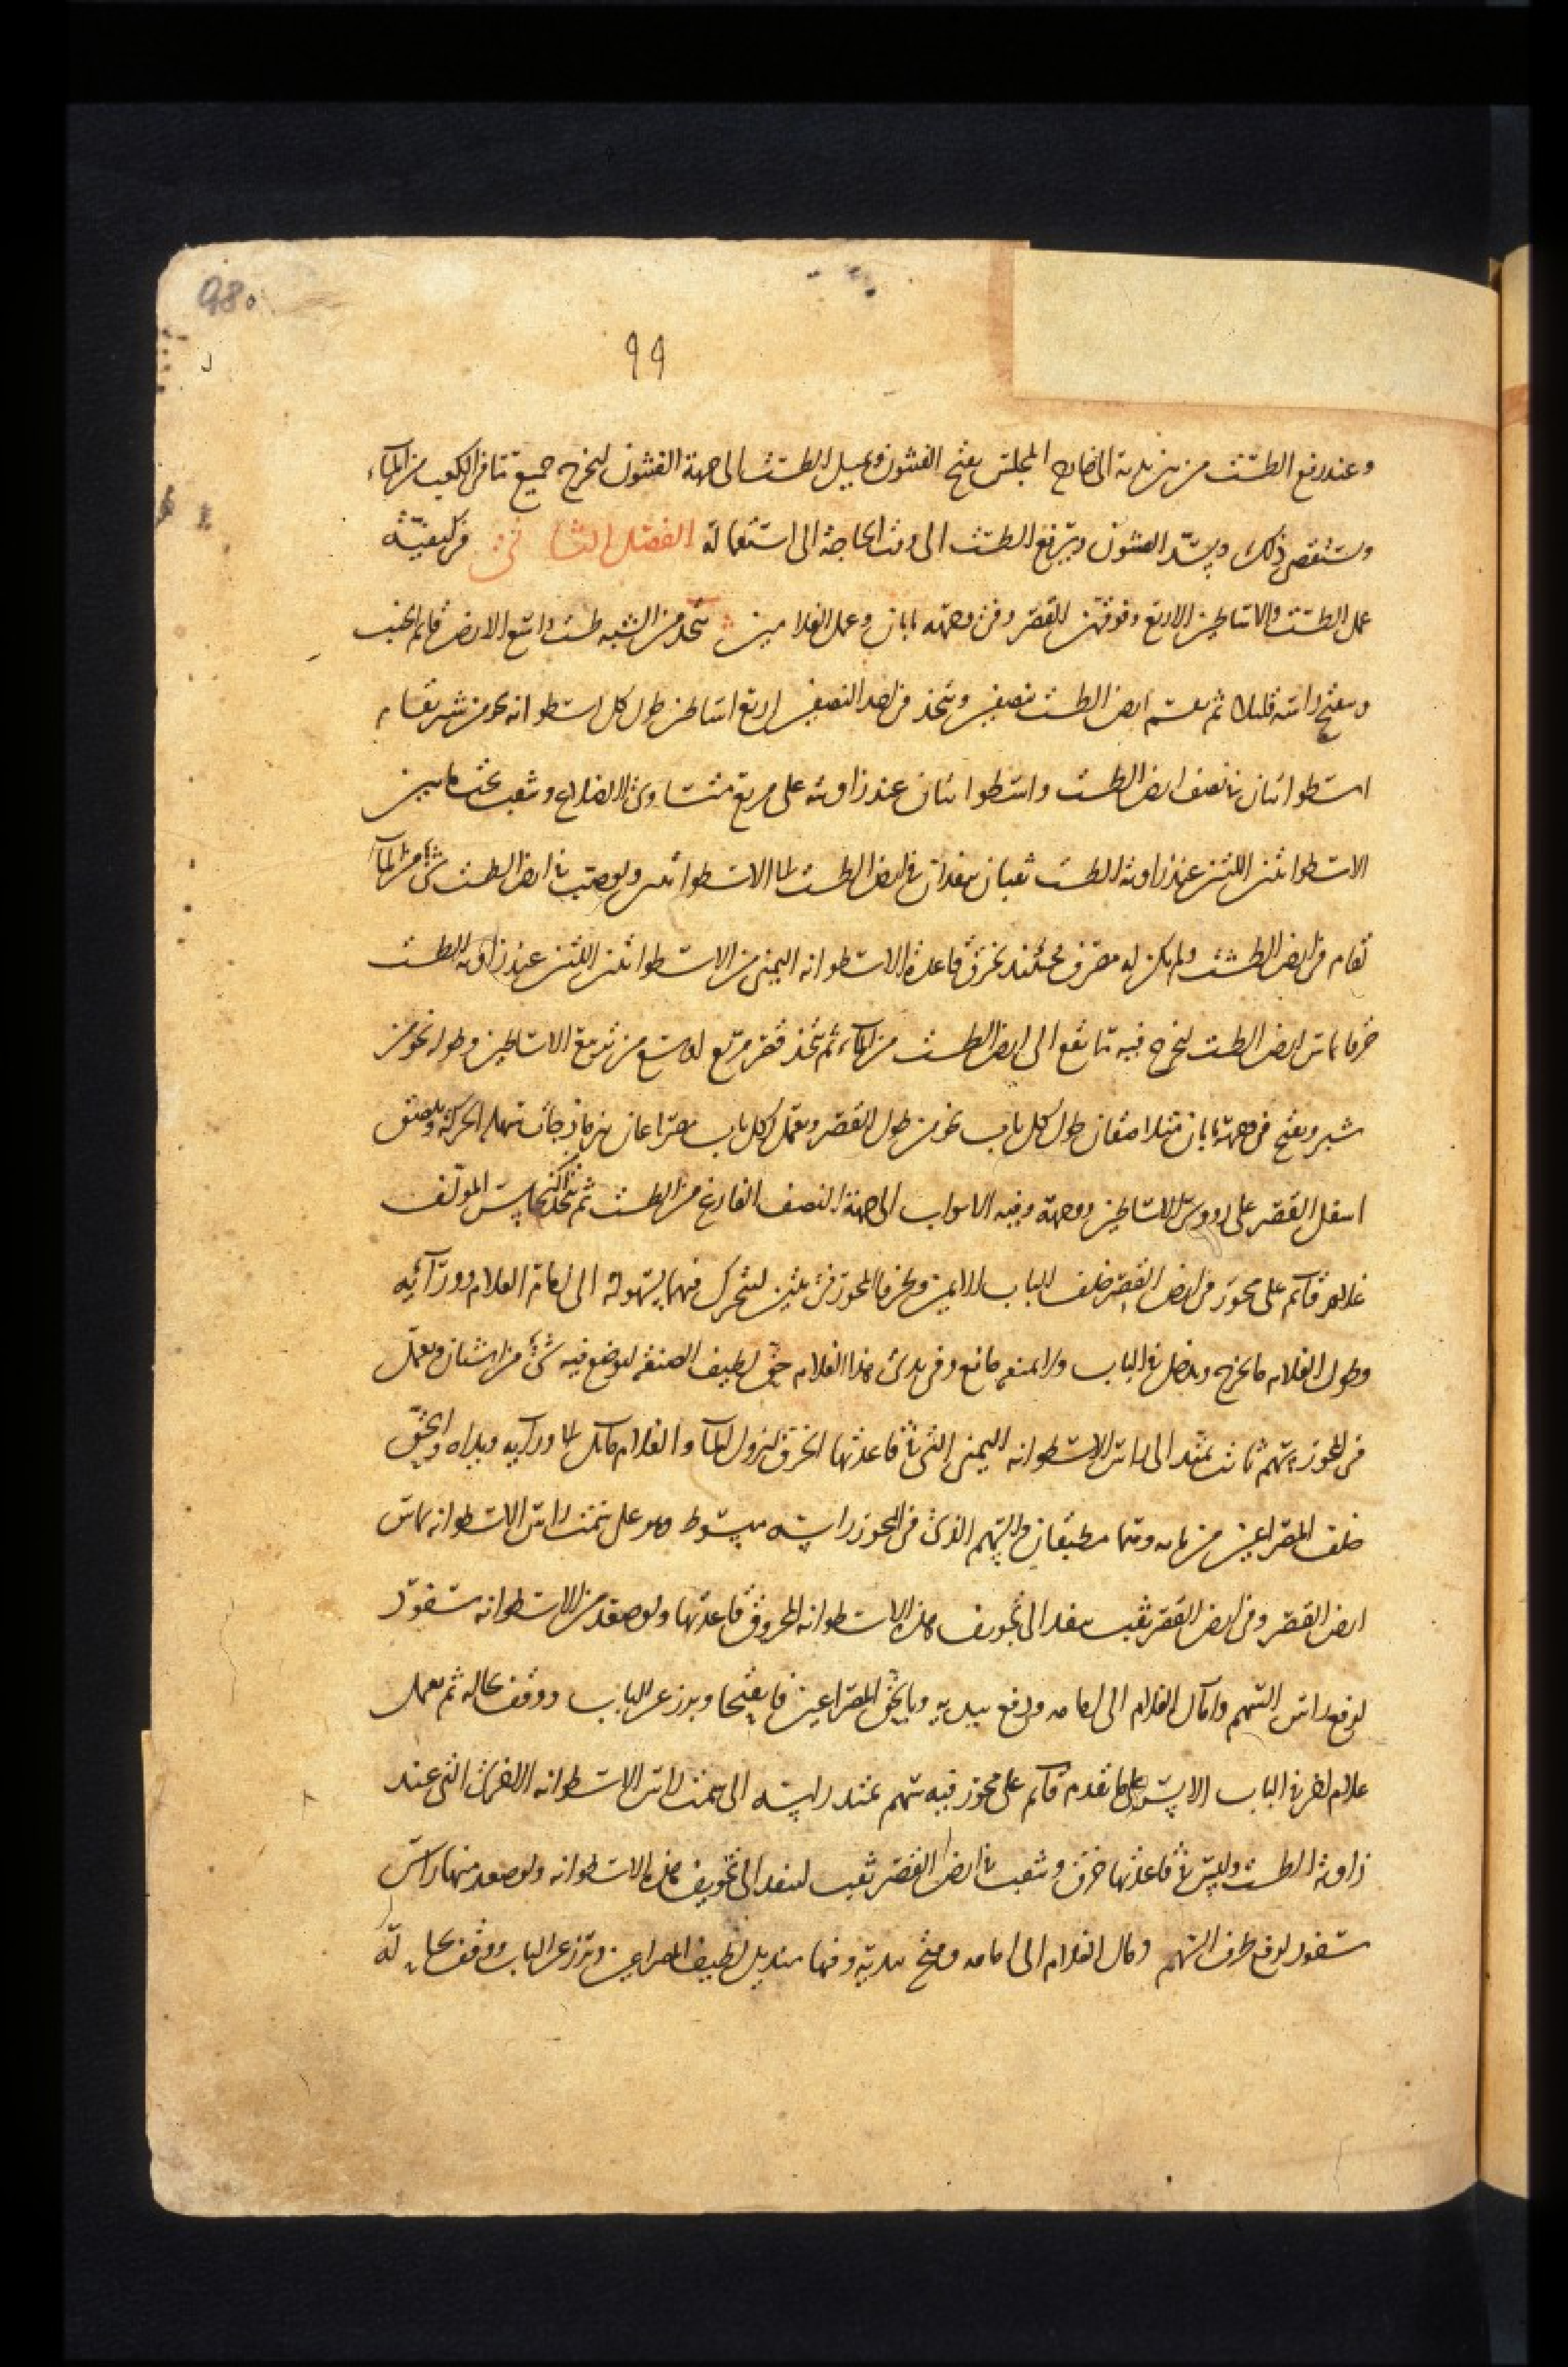 98.
99
وعند رفع الطست من بين يديه الى خارج المجلس يفتح الفيثون ويميل الطست الى جهة الفيثون ليخرج جميع ما في الكعب من الماء
ويستقصي ذلك ويسد الفيثون ويرفع الطست الى وقت الحاجة الى استعماله الفصل الثاني في كيفية
عمل الطست والاساطين الاربع وفوقهن القصر وفي وجهه بابان وعمل الغلامين يتخذ من الشبه طست واسع الارض قائم الجنب
ويفتح راسه قليلا ثم يقسم ارض الطست نصفين ويتخذ في احد النصفين اربع اساطين طول كل اسطوانه نحو من شبر يقام
اسطوانتان في نصف ارض الطست واسطوانتان عند زاويته على مربع متساوي الاضلاع وثقب تحت هاتين
الاسطوانتين اللتين عند زاوية الطست ثقبان ينفذان في ارض الطست الى الاسطوانتين ولو صب في ارض الطست شيء من الماء
لقام في ارض الطست ولم يكن له مصرف فحينئذ يخرق قاعدة الاسطوانه اليمنى من الاسطوانتين اللتين عند زاوية الطست
خرقا يماس ارض الطست ليخرج فيه ما يقع الى ارض الطست من الماء ثم يتخذ قصر مربع اوسع من تربيع الاساطين وطوله نحو من
شبر ويفتح في وجهه بابان متلاصقان طول كل باب نحو من طول القصر ويعمل لكل باب مصراعان بنرماذجات سهله الحركة ويلصق
اسفل القصر على رووس الاساطين ووجهه وفيه الابواب الى جهة النصف الفارغ من الطست ثم يتخذ من النحاس المولف
غلام قائم على محور في ارض القصر خلف الباب الايمن وطرفا المحور في بيتين ليتحرك فيهما بسهولة الى امام الغلام وورائه
وطول الغلام ما يخرج ويدخل في الباب ولا يمنعه مانع وفي يدي هذا الغلام حق لطيف الصنعه ليوضع فيه شيء من اشنان ويعمل
في المحور سهم ثابت يمتد الى راس الاسطوانه اليمنى التي في قاعدتها الخرق لنزول الماء والغلام مائل الى ورائه ويداه والحق
خلف المصراعين من بابه وهما مطبقان والسهم الذي في المحور راسه مبسوط وهو على سمت راس الاسطوانه يماس
ارض القصر وفي ارض القصر ثقب ينفذ الى تجويف هذه الاسطوانه المخروق قاعدتها ولو صعد من الاسطوانه سفود
لرفع راس السهم وامال الغلام الى امامه ودفع بيديه وبالحق المصراعين فانفتحا وبرز عن الباب ووقف بحاله ثم يعمل
غلام اخر في الباب الايسر على ما تقدم قائم على محور فيه سهم يمتد راسه الى سمت راس الاسطوانه الاخرى التي عند
زاوية الطست وليس في قاعدتها خرق وثقب في ارض القصر ثقب لينفذ الى تجويف هذه الاسطوانه ولو صعد منها راس
سفود لرفع طرف السهم ومال الغلام الى امامه وفتح بيديه وفيهما منديل لطيف المصراعين وبرز عن الباب ووقف بحاله